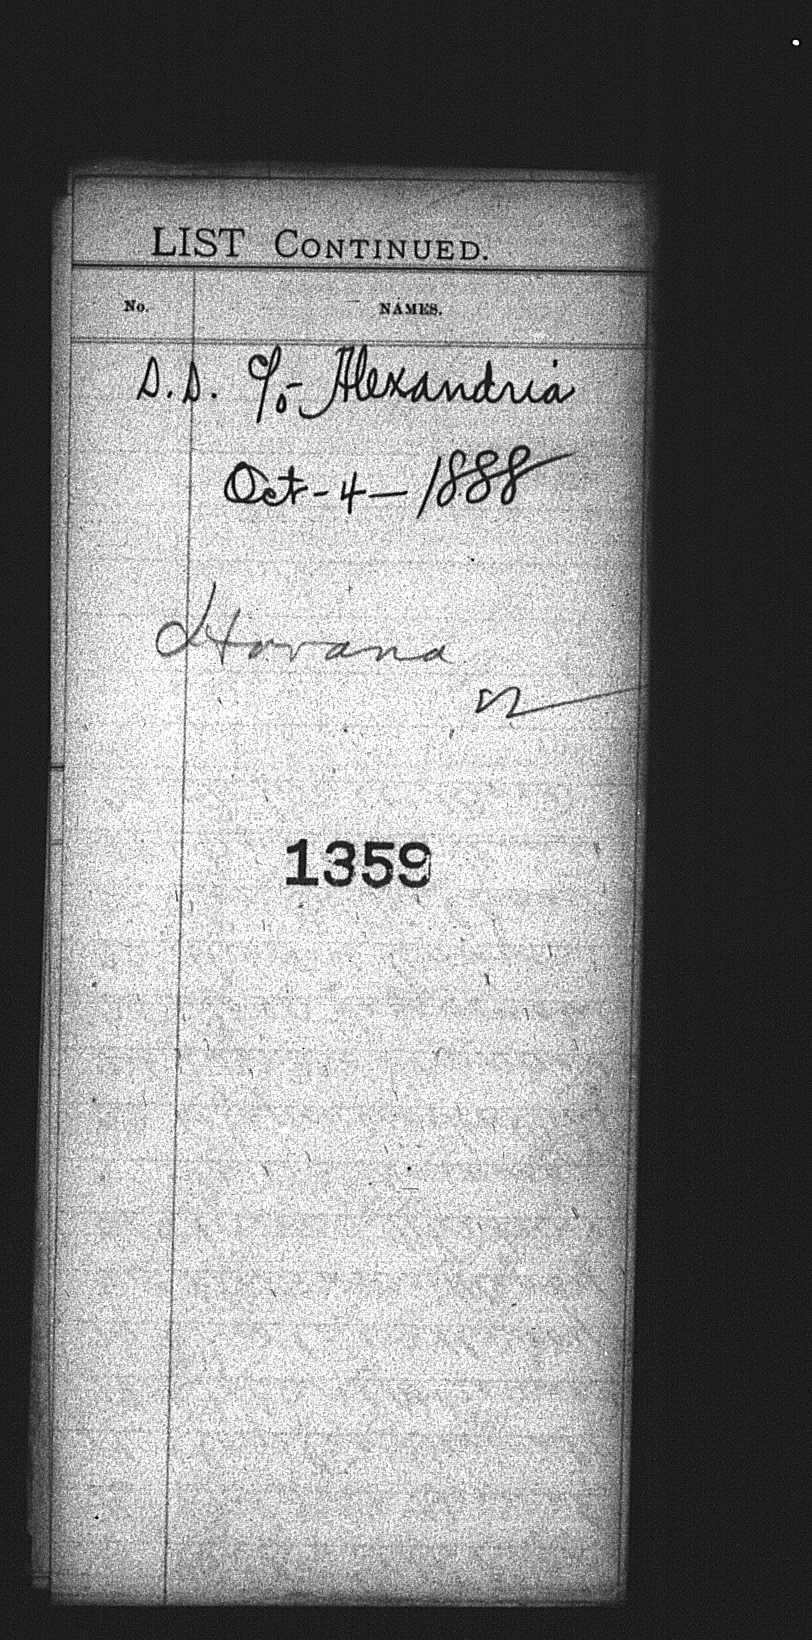 LIST CONTINUED.
No. NAMES.
S.S. C/o Alexandria
Oct-4-1888
Havana
1359